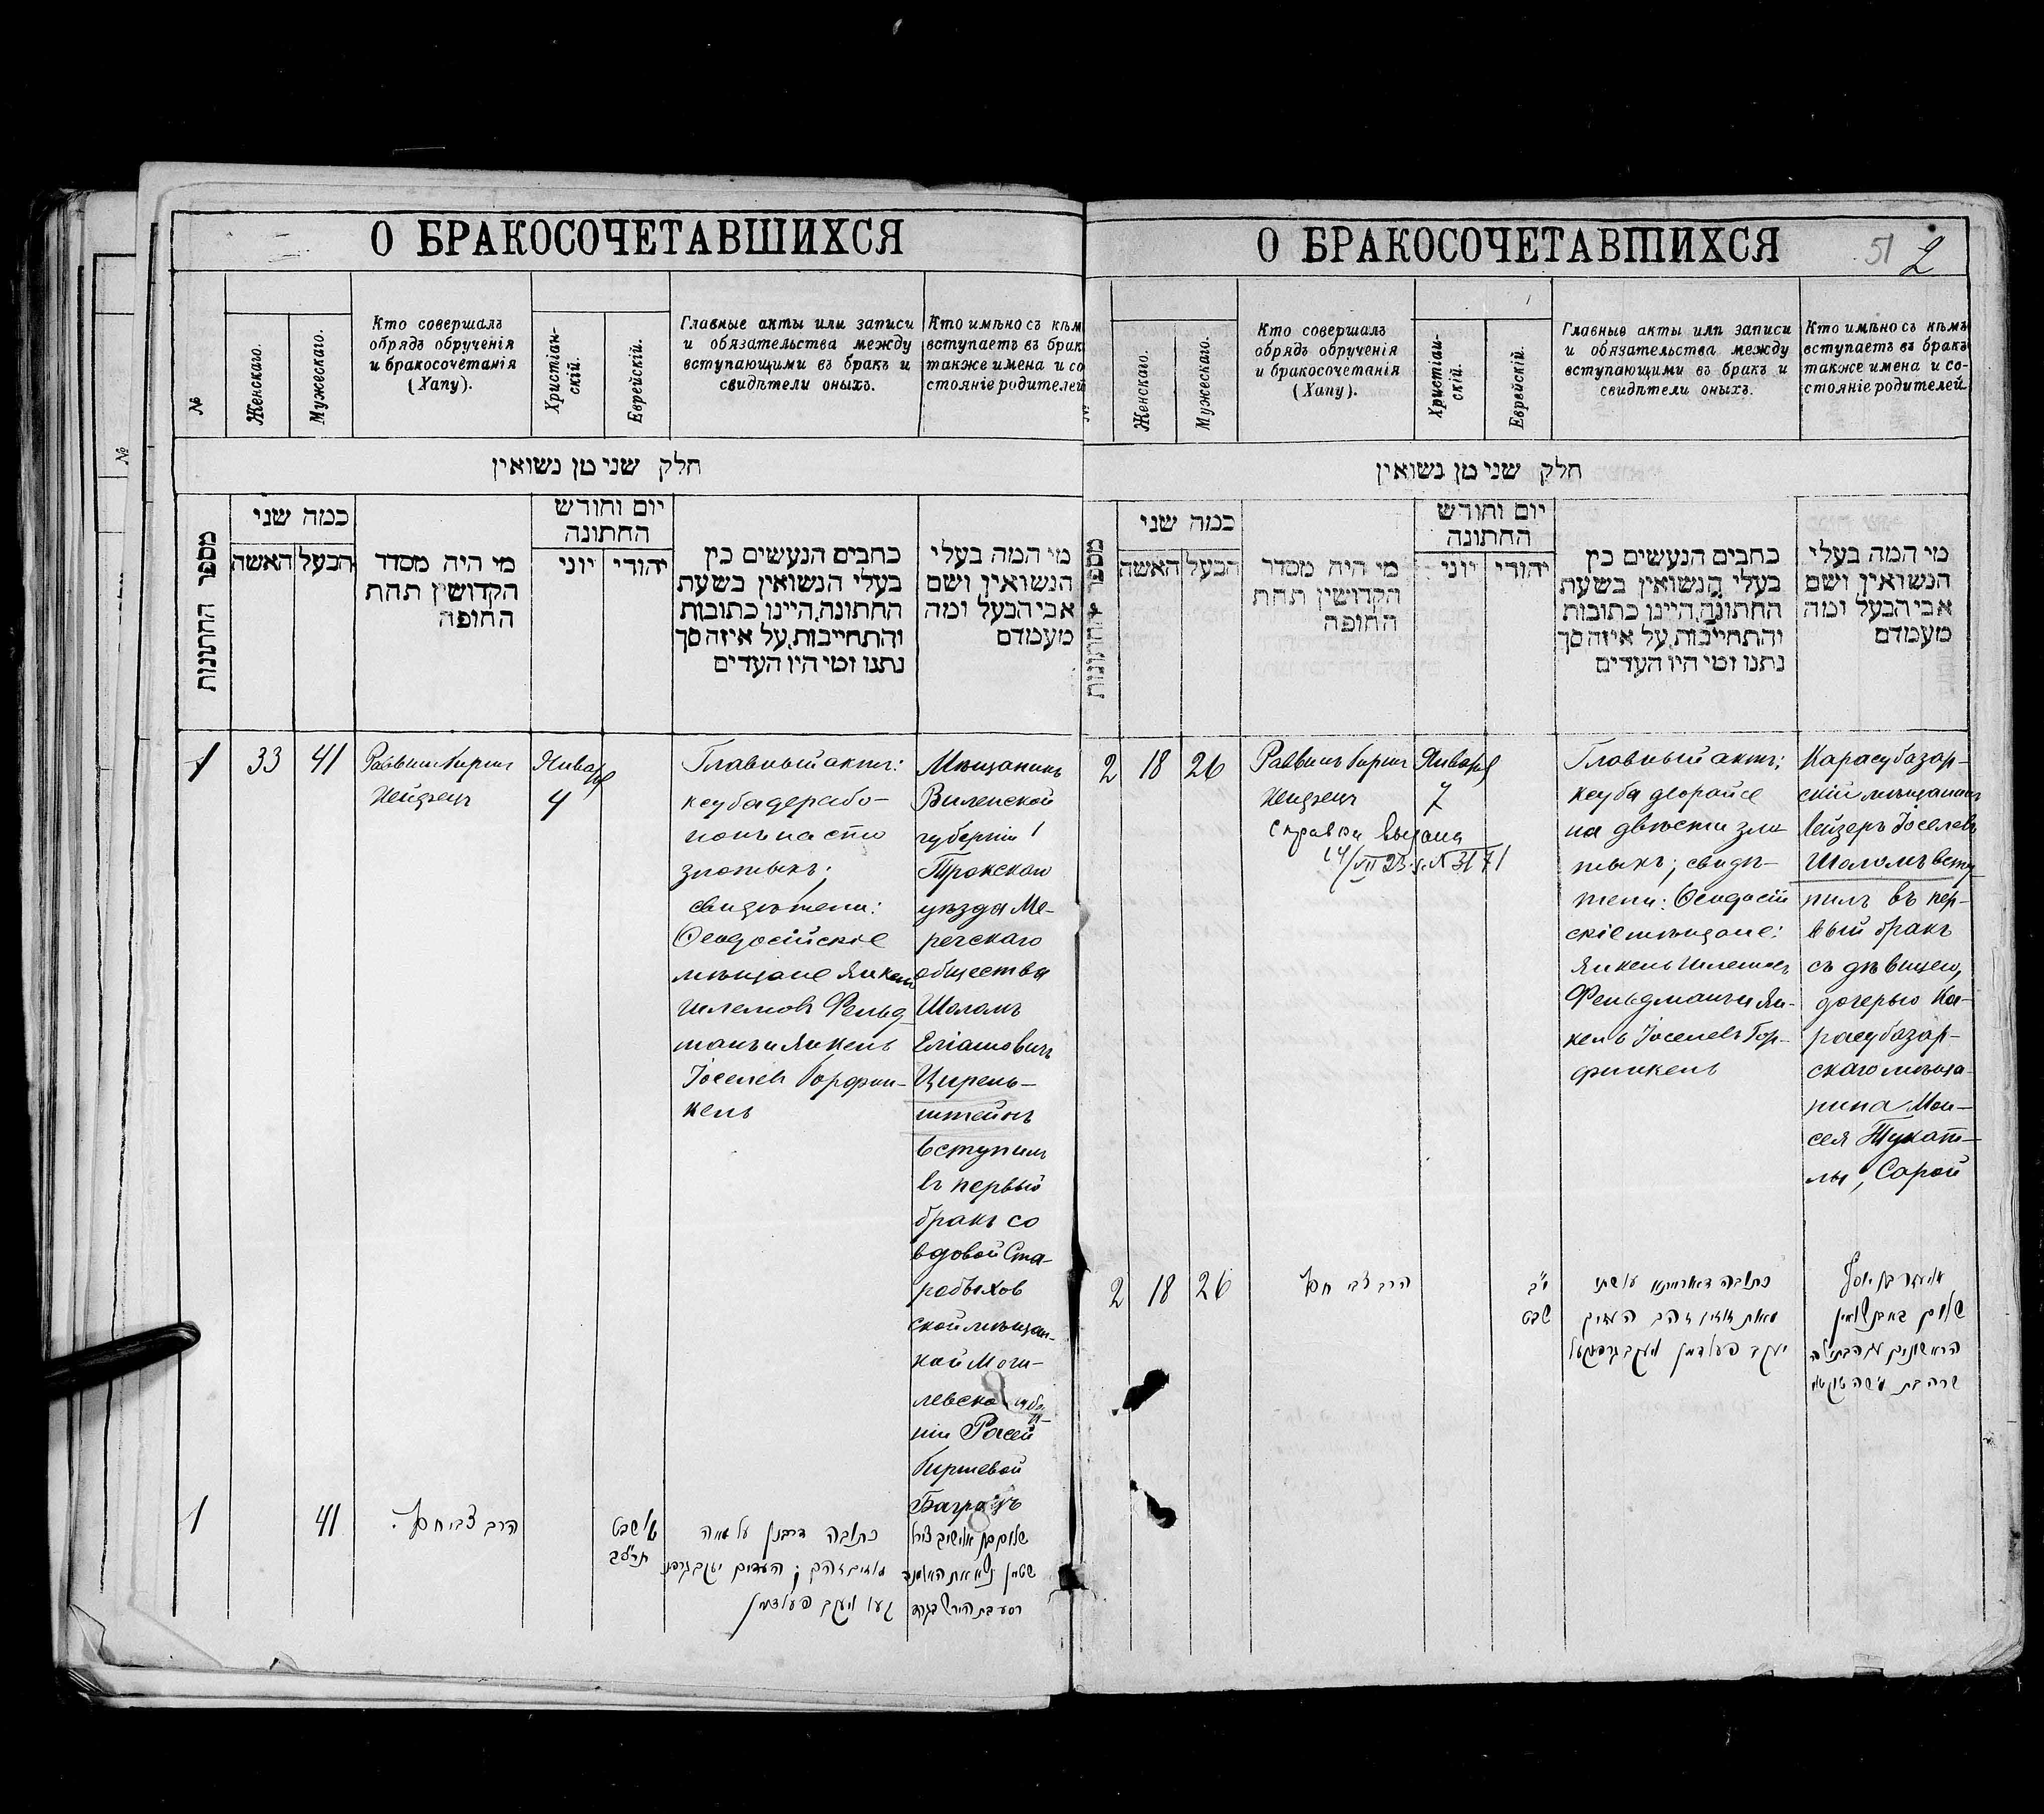 О БРАКОСОЧЕТАВШИХСЯ
№
Женскаго.
Мужескаго.
Кто совершалъ
обрядъ обрученія
и бракосочетанія
(Хапу).
Христіан-
скій.
Еврейскій.
Главные акты или записи
и обязательства между
вступающими въ бракъ и
свидѣтели оныхъ.
Кто имѣно съ кѣм
вступаетъ въ брак
также имена и со
стояніе родителей
חלק שני מן נשואין
מספר החתונות
כמה שני
האשה
הבעל
מי היה מסדר
הקדושין תחת
החופה
יום וחודש
החתונה
יוני
יהודי
כתבים הנעשים בין
בעלי הנשואין בשעת
החתונה, היינו כתובות
והתחייבות, על איזה סך
נתנו ומי היו העדים
מי המה בעלי
הנשואין ושם
אבי הבעל ומה
מעמדם
1
33
41
Раввинъ Гирш
Нейзец
Января
4
Главный актъ:
ксуба дерабо-
нонъ на сто
злотыхъ;
свидѣтели:
Ѳеодосійскіе
мѣщане Янкель
Шлемовъ Фельд
манъ и Янкель
Іоселевъ Горфин-
кель
Мѣщанинъ
Виленской
губерніи
Трокскаго
уѣзда Ме-
речскаго
общества
Шоломъ
Еліашовичъ
Цирень-
штейнъ
вступилъ
въ первый
бракъ со
вдовой Ста-
робыхов
ской мѣщан-
кой Моги-
левской губер-
ніи Расей
Гиршевой
1
41
הרב צבי
שבט
כתובה דרבנן על מאה
זהב ; העדים יעקב
יעקב פעלדמן
שלום בן
שטיין נשא את האלמנה
בת הירש
О БРАКОСОЧЕТАВШИХСЯ
51 2
№
Женскаго.
Мужескаго.
Кто совершалъ
обрядъ обрученія
и бракосочетанія
(Хапу).
Христіан-
скій.
Еврейскій.
Главные акты или записи
и обязательства между
вступающими въ бракъ и
свидѣтели оныхъ.
Кто имѣно съ кѣмъ
вступаетъ въ бракъ
также имена и со-
стояніе родителей
חלק שני מן נשואין
מספר החתונות
כמה שני
האשה
הבעל
מי היה מסדר
הקדושין תחת
החופה
יום וחודש
החתונה
יוני
יהודי
כתבים הנעשים בין
בעלי הנשואין בשעת
החתונה, היינו כתובות
והתחייבות, על איזה סך
נתנו ומי היו העדים
מי המה בעלי
הנשואין ושם
אבי הבעל ומה
מעמדם
2
18
26
Раввинъ Гирш
Нейзец
Справка выдана
14/VII 23 г. N 3171
Января
7
Главный актъ:
ксуба деорайсе
на двѣсти зло
тыхъ; свидѣ-
тели: Ѳеодосій
скіе мѣщане:
Янкель Шлемовъ
Фельдманъ и Ян-
кель Іоселевъ Гор-
финкель
Карасубазар-
скій мѣщанинъ
Лейзеръ Іоселевъ
Шоломъ всту
пилъ въ пер-
вый бракъ
съ дѣвицею,
дочерью Ка-
расубазар-
скаго мѣща-
нина Мои-
сея Тукат-
лы, Сарой
2
18
26
הרב צבי
י"ב
שבט
כתובה דאורייתא על שתי
מאות זהב העדים
יעקב פעלדמן יעקב
אליעזר בן יוסף
שלום בא בנשואין
הראשונים עם הבתולה
שרה בת משה